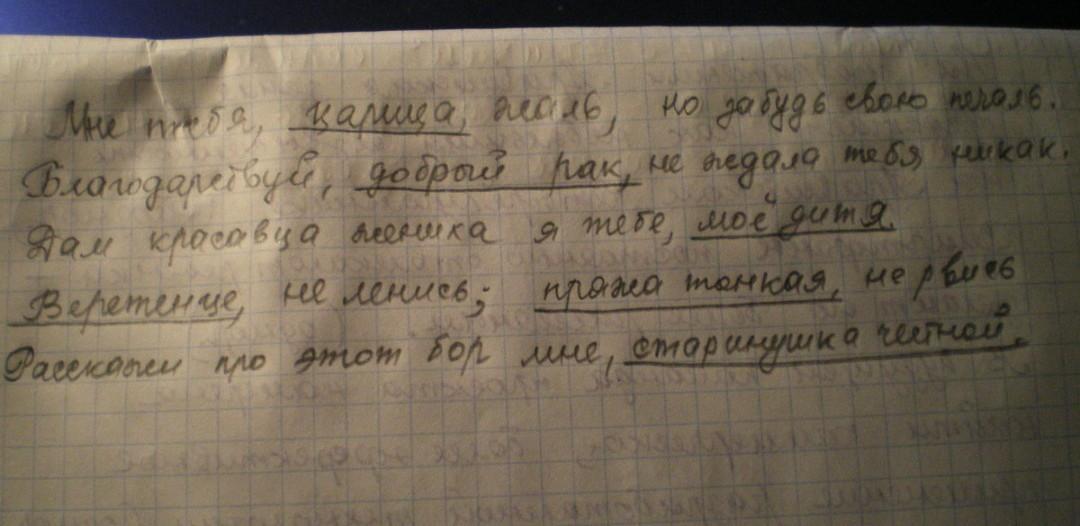 Мне тебя, царица, жаль, но забудь свою печаль.
Благодарствуй, добрый рак, не ждала тебя никак.
Дам красавца жениха я тебе, моё дитя.
Веретенце, не ленись; пряжа тонкая, не рвись
Расскажи про этот бор мне, старинушка честной.